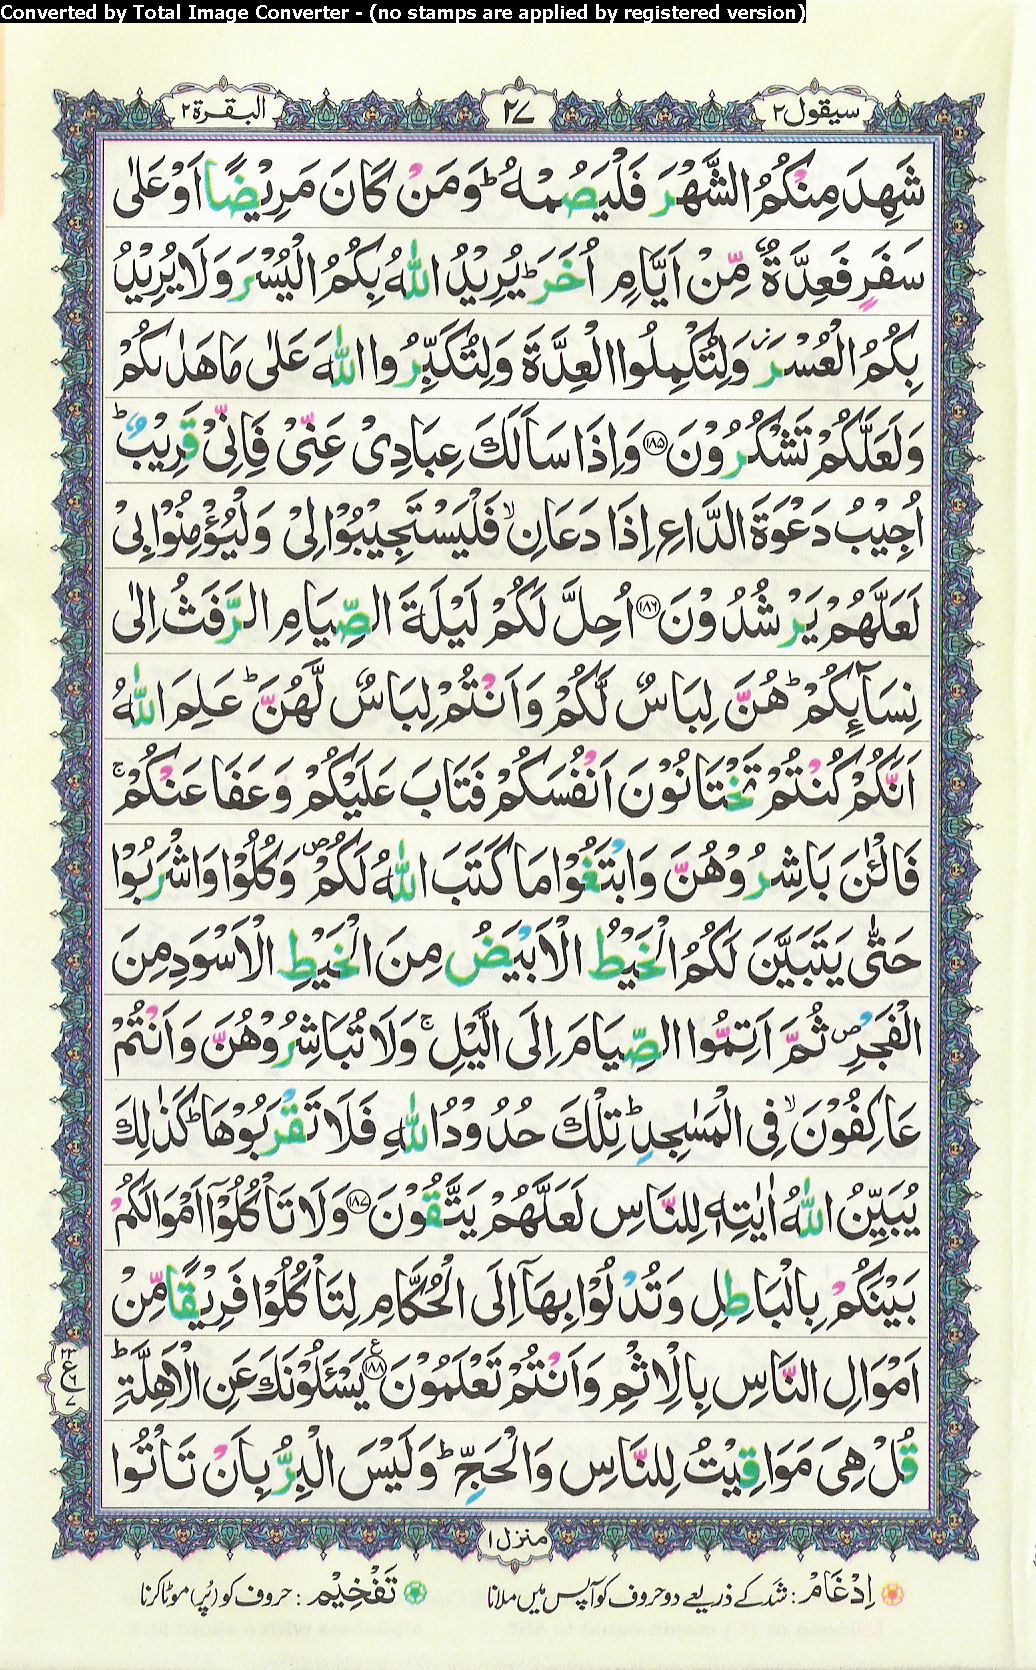 Converted by Total Image Converter - (no stamps are applied by registered version)
سيقول ٢ ٢٧ البقرة ٢
شَهِدَ مِنْكُمُ الشَّهْرَ فَلْيَصُمْهُ ؕ وَمَنْ كَانَ مَرِيْضًا اَوْ عَلٰى
سَفَرٍ فَعِدَّةٌ مِّنْ اَيَّامٍ اُخَرَ ؕ يُرِيْدُ اللّٰهُ بِكُمُ الْيُسْرَ وَلَا يُرِيْدُ
بِكُمُ الْعُسْرَ ؗ وَلِتُكْمِلُوا الْعِدَّةَ وَلِتُكَبِّرُوا اللّٰهَ عَلٰى مَا هَدٰىكُمْ
وَلَعَلَّكُمْ تَشْكُرُوْنَ ﴿۱۸۵﴾ وَاِذَا سَاَلَكَ عِبَادِيْ عَنِّيْ فَاِنِّيْ قَرِيْبٌ ؕ
اُجِيْبُ دَعْوَةَ الدَّاعِ اِذَا دَعَانِ ۙ فَلْيَسْتَجِيْبُوْا لِيْ وَلْيُؤْمِنُوْا بِيْ
لَعَلَّهُمْ يَرْشُدُوْنَ ﴿۱۸۶﴾ اُحِلَّ لَكُمْ لَيْلَةَ الصِّيَامِ الرَّفَثُ اِلٰى
نِسَآئِكُمْ ؕ هُنَّ لِبَاسٌ لَّكُمْ وَاَنْتُمْ لِبَاسٌ لَّهُنَّ ؕ عَلِمَ اللّٰهُ
اَنَّكُمْ كُنْتُمْ تَخْتَانُوْنَ اَنْفُسَكُمْ فَتَابَ عَلَيْكُمْ وَعَفَا عَنْكُمْ ۚ
فَالْئٰنَ بَاشِرُوْهُنَّ وَابْتَغُوْا مَا كَتَبَ اللّٰهُ لَكُمْ ۪ وَكُلُوْا وَاشْرَبُوْا
حَتّٰى يَتَبَيَّنَ لَكُمُ الْخَيْطُ الْاَبْيَضُ مِنَ الْخَيْطِ الْاَسْوَدِ مِنَ
الْفَجْرِ ۪ ثُمَّ اَتِمُّوا الصِّيَامَ اِلَى الَّيْلِ ۚ وَلَا تُبَاشِرُوْهُنَّ وَاَنْتُمْ
عَاكِفُوْنَ ۙ فِي الْمَسٰجِدِ ؕ تِلْكَ حُدُوْدُ اللّٰهِ فَلَا تَقْرَبُوْهَا ؕ كَذٰلِكَ
يُبَيِّنُ اللّٰهُ اٰيٰتِهٖ لِلنَّاسِ لَعَلَّهُمْ يَتَّقُوْنَ ﴿۱۸۷﴾ وَلَا تَاْكُلُوْٓا اَمْوَالَكُمْ
بَيْنَكُمْ بِالْبَاطِلِ وَتُدْلُوْا بِهَآ اِلَى الْحُكَّامِ لِتَاْكُلُوْا فَرِيْقًا مِّنْ
اَمْوَالِ النَّاسِ بِالْاِثْمِ وَاَنْتُمْ تَعْلَمُوْنَ ﴿۱۸۸﴾ ع يَسْـَٔلُوْنَكَ عَنِ الْاَهِلَّةِ ؕ
٢٣ ع ٦ ٧
قُلْ هِيَ مَوَاقِيْتُ لِلنَّاسِ وَالْحَجِّ ؕ وَلَيْسَ الْبِرُّ بِاَنْ تَاْتُوا
منزل ١
اِدْغَامْ: شَد کے ذریعے دو حروف کو آپس میں ملانا تَفْخِيْم: حروف کو (پُر) موٹا کرنا